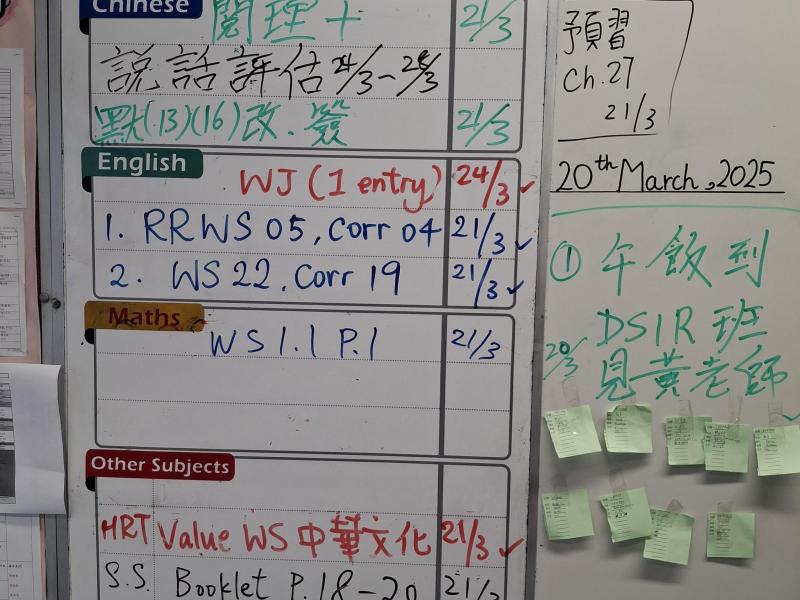 Chinese
閱理十 21/3
說話評估 24/3-28/3
默(13)(16)改.簽 21/3
English
WJ (1 entry) 24/3 ✓
1. RRWS 05, Corr 04 21/3 ✓
2. WS 22, Corr 19 21/3 ✓
Maths
WS 1.1 P.1 21/3
Other Subjects
HRT Value WS 中華文化 21/3 ✓
S.S. Booklet P.18-20 21/3
預習
Ch.27
21/3
20th March, 2025
① 午飯到
DS1R 班
20/3 見黃老師